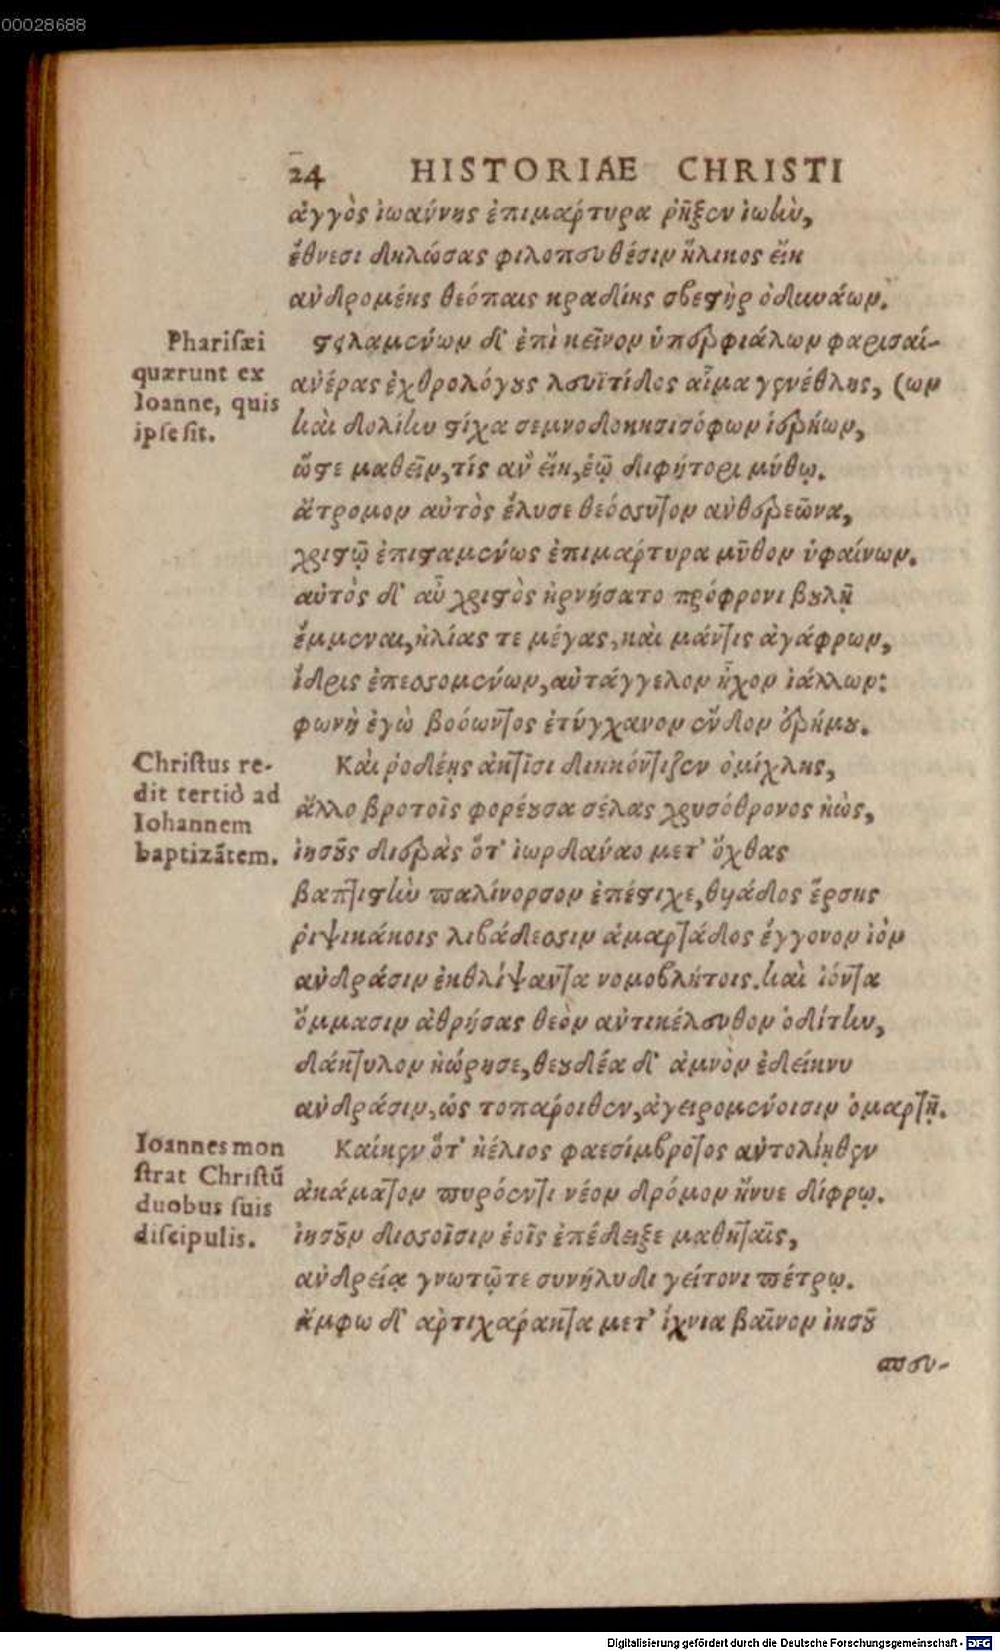 00028688
24 HISTORIAE CHRISTI
ἀγγὸς ἰωαύνης ἐπιμαρτυρα ῥῆξεν ἰωὴν,
ἔθνεσι δηλώσας φιλοπευθέσιν ἥλικος εἴη
ἀνδρομένης θεόπαις κραδίης σβεστὴρ ὀδυνάων.
Pharisæi
quærunt ex
Ioanne, quis
ipse sit.
στελλαμένων δ' ἐπὶ κεῖνον ὑπερφιάλων φαρισαί-
ἀνέρας ἐχθρολόγους λευϊτίδος αἷμα γενέθλης, (ων
καὶ δολίην στίχα σεμνοδοκησισόφων ἱερήων,
ὥστε μαθεῖν, τίς ἂν εἴη, ἑῷ διφήτορι μύθῳ.
ἄτρομον αὐτὸς ἔλυσε θεόσσυτον ἀνθερεῶνα,
χριστῷ ἐπισταμένως ἐπιμάρτυρα μῦθον ὑφαίνων.
αὐτὸς δ' αὖ χριστὸς ἠρνήσατο πρόφρονι βουλῇ
ἔμμεναι, ἠλίας τε μέγας, καὶ μάντις ἀγάφρων,
ἴδρις ἐπεσσομένων, αὐτάγγελον ἦχον ἰάλλων:
φωνὴ ἐγὼ βοόωντος ἐτύγχανον ἔνδον ἐρήμου.
Christus re-
dit tertiò ad
Iohannem
baptizãtem.
Καὶ ῥοδέης ἀκτῖσι διηκόντιζεν ὀμίχλης,
ἄλλο βροτοῖς φορέουσα σέλας χρυσόθρονος ἠὼς,
ἰησοῦς διερὰς ὅτ' ἰωρδανάαο μετ' ὄχθας
βαπτιστὴν παλίνορσον ἐπέστιχε, θυάδος ἔρσης
ῥιψικάκοις λιβάδεσσιν ἁμαρτάδος ἔγγονον ἰὸν
ἀνδράσιν ἐκθλίψαντα νομοβλήτοις. καὶ ἰόντα
ὄμμασιν ἀθρήσας θεὸν ἀντικέλευθον ὁδίτην,
δάκτυλον ᾐώρησε, θεουδέα δ' ἀμνὸν ἐδείκνυ
ἀνδράσιν, ὡς τοπάροιθεν, ἀγειρομένοισιν ὁμαρτῇ.
Ioannes mon
strat Christũ
duobus suis
discipulis.
Καίκεν ὅτ' ἠέλιος φαεσίμβροτος αὐτολίκηθεν
ἀκάματον πυρόεντι νέον δρόμον ἤνυε δίφρῳ.
ἰησοῦν δισσοῖσιν ἑοῖς ἐπέδειξε μαθηταῖς,
ἀνδρείᾳ γνωτῷτε συνήλυδι γείτονι πέτρῳ.
ἄμφω δ' ἀρτιχάρακτα μετ' ἴχνια βαῖνον ἰησοῦ
ασυ-
Digitalisierung gefördert durch die Deutsche Forschungsgemeinschaft - DFG